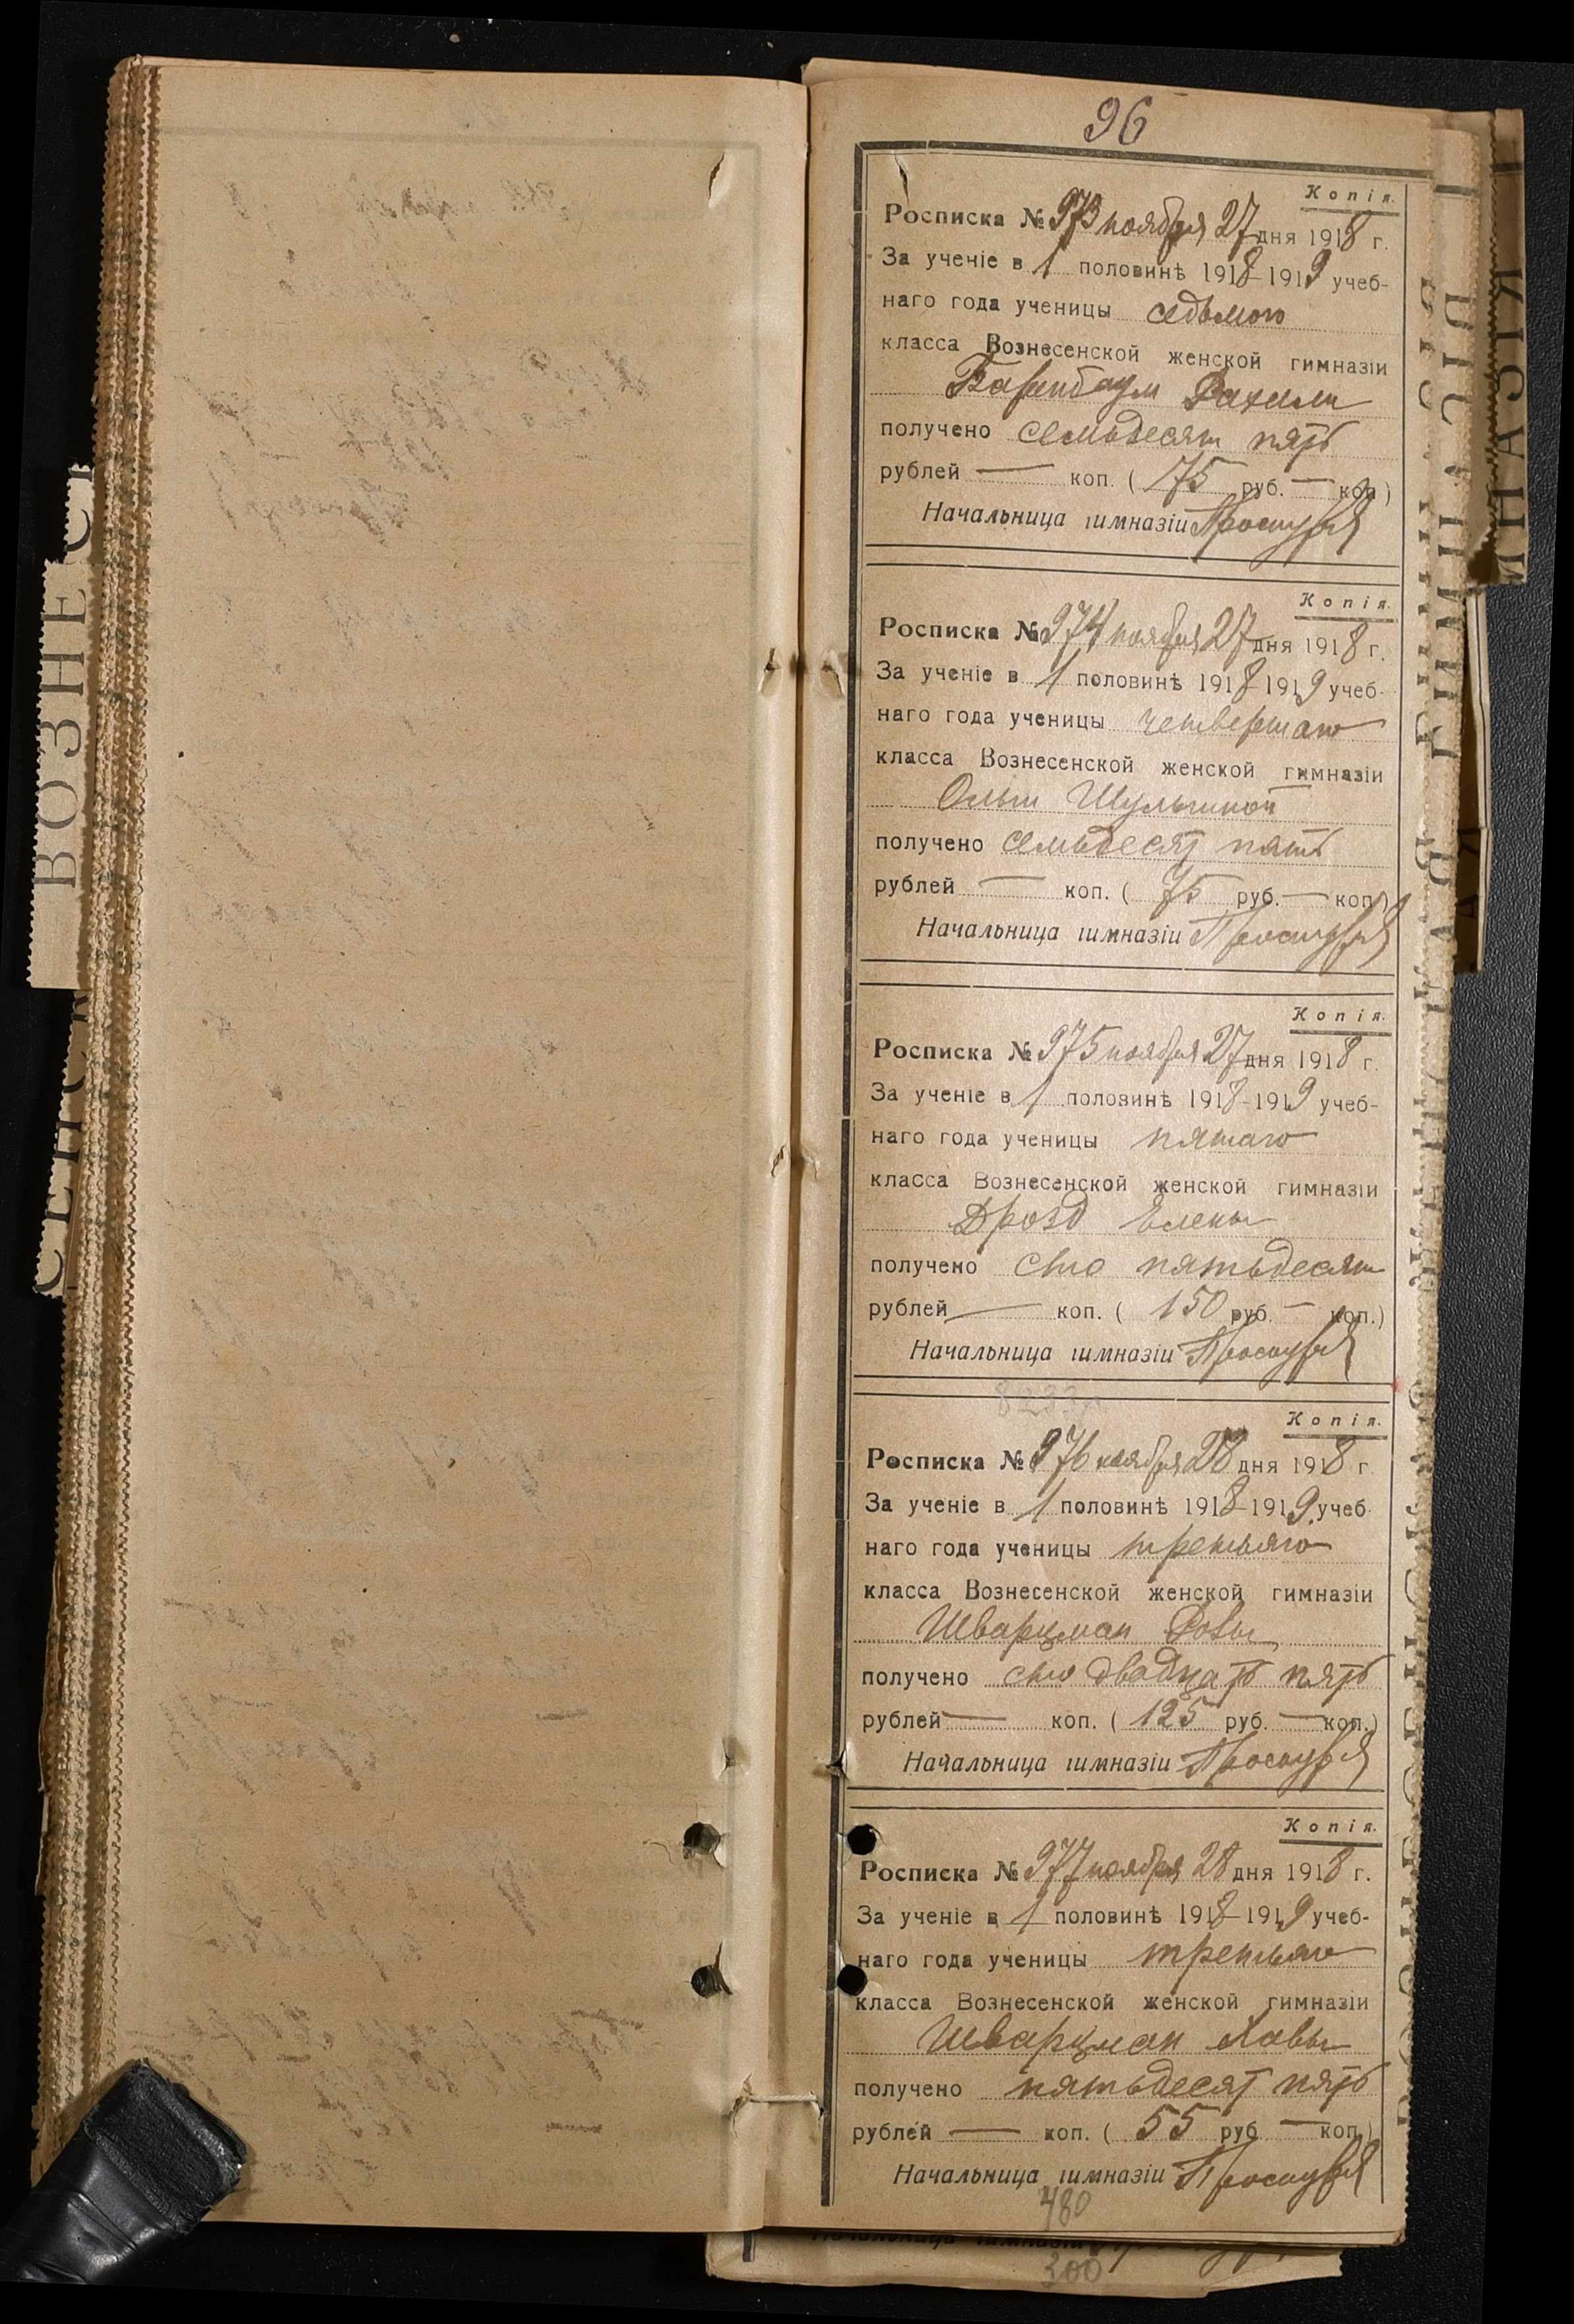 96
Копія.
Росписка № 973 ноября 27 дня 1918 г.
За ученіе в 1 половинѣ 1918-1919 учеб-
наго года ученицы седьмого
класса Вознесенской женской гимназіи
Баренбаум Рахили
получено семьдесят пять
рублей — коп. ( 75 руб. — коп.)
Начальница гимназіи
Копія.
Росписка № 974 ноября 27 дня 1918 г.
За ученіе в 1 половинѣ 1918-1919 учеб-
наго года ученицы четвертаго
класса Вознесенской женской гимназіи
Ольги Шульгиной
получено семьдесят пять
рублей — коп. ( 75 руб. — коп.)
Начальница гимназіи
Копія.
Росписка № 975 ноября 27 дня 1918 г.
За ученіе в 1 половинѣ 1918-1919 учеб-
наго года ученицы пятаго
класса Вознесенской женской гимназіи
Дрозд Елены
получено сто пятьдесят
рублей — коп. ( 150 руб. — коп.)
Начальница гимназіи
Копія.
Росписка № 976 ноября 28 дня 1918 г.
За ученіе в 1 половинѣ 1918-1919 учеб-
наго года ученицы третьяго
класса Вознесенской женской гимназіи
Шварцман Ровы
получено сто двадцать пять
рублей — коп. ( 125 руб. — коп.)
Начальница гимназіи
Копія.
Росписка № 977 ноября 28 дня 1918 г.
За ученіе в 1 половинѣ 1918-1919 учеб-
наго года ученицы третьяго
класса Вознесенской женской гимназіи
Шварцман Хавы
получено пятьдесят пять
рублей — коп. ( 55 руб. — коп.)
Начальница гимназіи
480
300
ВОЗНЕС